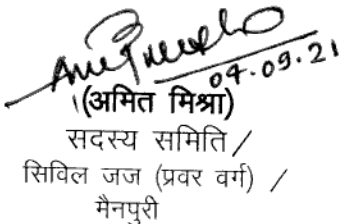 04.09.21
(अमित मिश्रा)
सदस्य समिति /
सिविल जज (प्रवर वर्ग) /
मैनपुरी